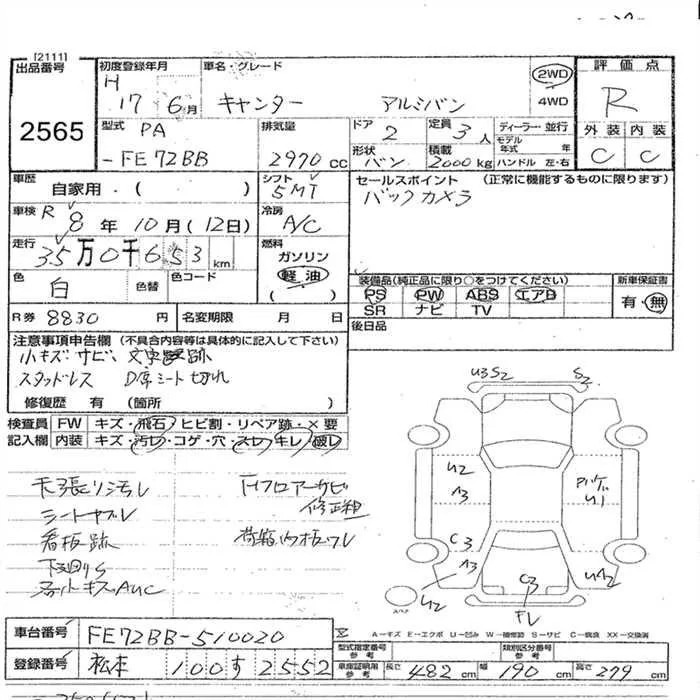 [2111]
出品番号
2565
初度登録年月
H 17年6月
車名・グレード
キャンター アルミバン
2WD
4WD
評価点
R
外装 内装
C C
型式 PA
-FE72BB
排気量
2970 cc
ドア 2
定員 3人
ディーラー・並行
モデル年式 年
形状 バン
積載 2000kg
ハンドル 左・右
車歴 自家用・( )
シフト 5MT
セールスポイント (正常に機能するものに限ります)
バックカメラ
車検 R 8年10月(12日)
冷房 A/C
走行 35万0千653km
燃料
ガソリン
軽油
( )
色 白
色替
色コード
装備品(純正品に限り○をつけてください)
PS PW ABS エアB
SR ナビ TV
新車保証書
有・無
R券 8830円
名変期限 月 日
後日品
注意事項申告欄(不具合内容等は具体的に記入して下さい)
小キズ サビ 文字跡
スタッドレス D席シート切れ
修復歴 有 (箇所 )
検査員 FW キズ・飛石・ヒビ割・リペア跡・×要
記入欄 内装 キズ・汚レ・コゲ・穴・スレ・キレ・破レ
天張り汚レ
シートヤブレ
看板跡
下廻りS
Fフロアーサビ
修正粗
荷箱内板ワレ
U3S2 S2
U2
A3
C3
A3
U2
U1
UA2
C3
FV
スペア
A-キズ E-エクボ U-凹み W-補修跡 S-サビ C-腐食 XX-交換済
車台番号 FE72BB-510020
登録番号 松本 100す2552
型式指定番号
参考
類別区分番号
参考
車庫証明用
参考
長さ 482cm 幅 190cm 高さ 279cm